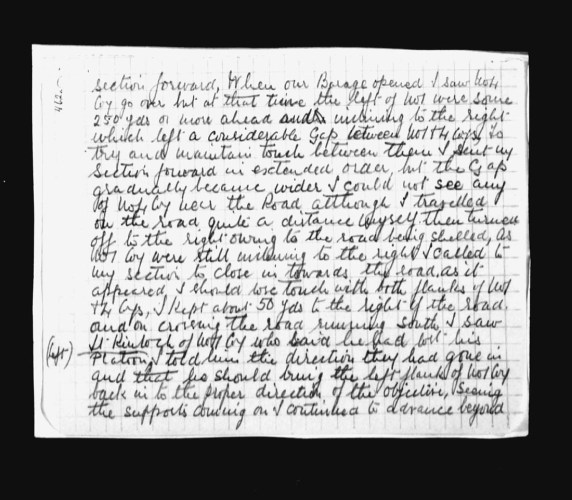 section forward, When our Barage opened I saw No 4
Coy go over but at that time the left of No 1 were some
250 yds or more ahead and inclining to the right
which left a considerable Gap between No 1 & 4 Coys, To
try and maintain touch between them I sent my
Section forward in extended order, but the Gap
gradually became wider I could not see any
of No 4 Coy near the Road although I travelled
on the road quite a distance myself then turned
off to the right owing to the road being shelled, as
No 1 Coy were still inclining to the right I called to
my section to close in towards the road, as it
appeared I should lose touch with both flanks of No 1
& 4 Coys, I kept about 50 yds to the right of the road
and on crossing the road running South I saw
Lt Kinloch of No 1 Coy who said he had lost his
(left) Platoon, I told him the direction they had gone in
and that he should bring the left flank of No 1 Coy
back in to the proper direction of the objective, Seeing
the supports coming on I continued to advance beyond